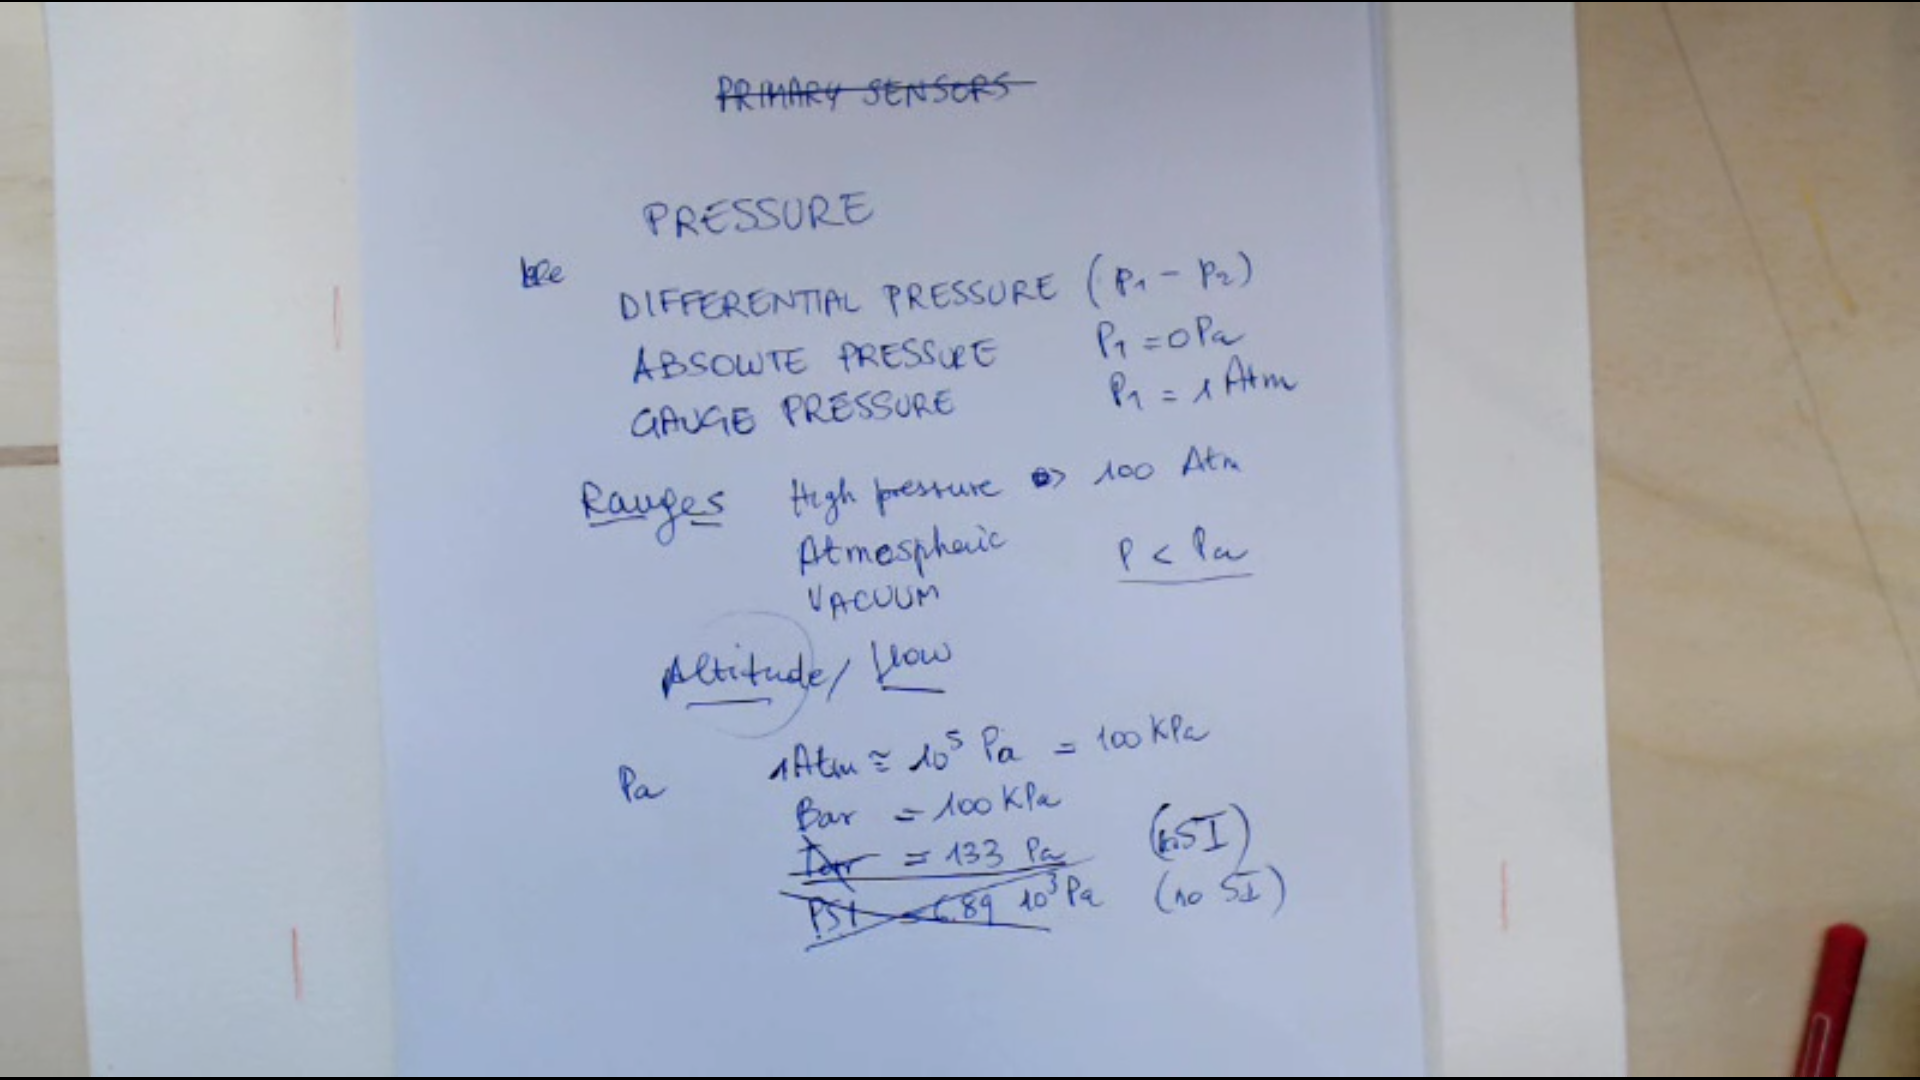 PRIMARY SENSORS
PRESSURE
DIFFERENTIAL PRESSURE (P1 - P2)
ABSOLUTE PRESSURE P1 = 0 Pa
GAUGE PRESSURE P1 = 1 Atm
Ranges High pressure => 100 Atm
Atmospheric P < Pa
VACUUM
Altitude / flow
Pa 1 Atm ≅ 10⁵ Pa = 100 KPa
Bar = 100 KPa
Torr = 133 Pa (no SI)
PSI = 6.89 10³ Pa (no SI)